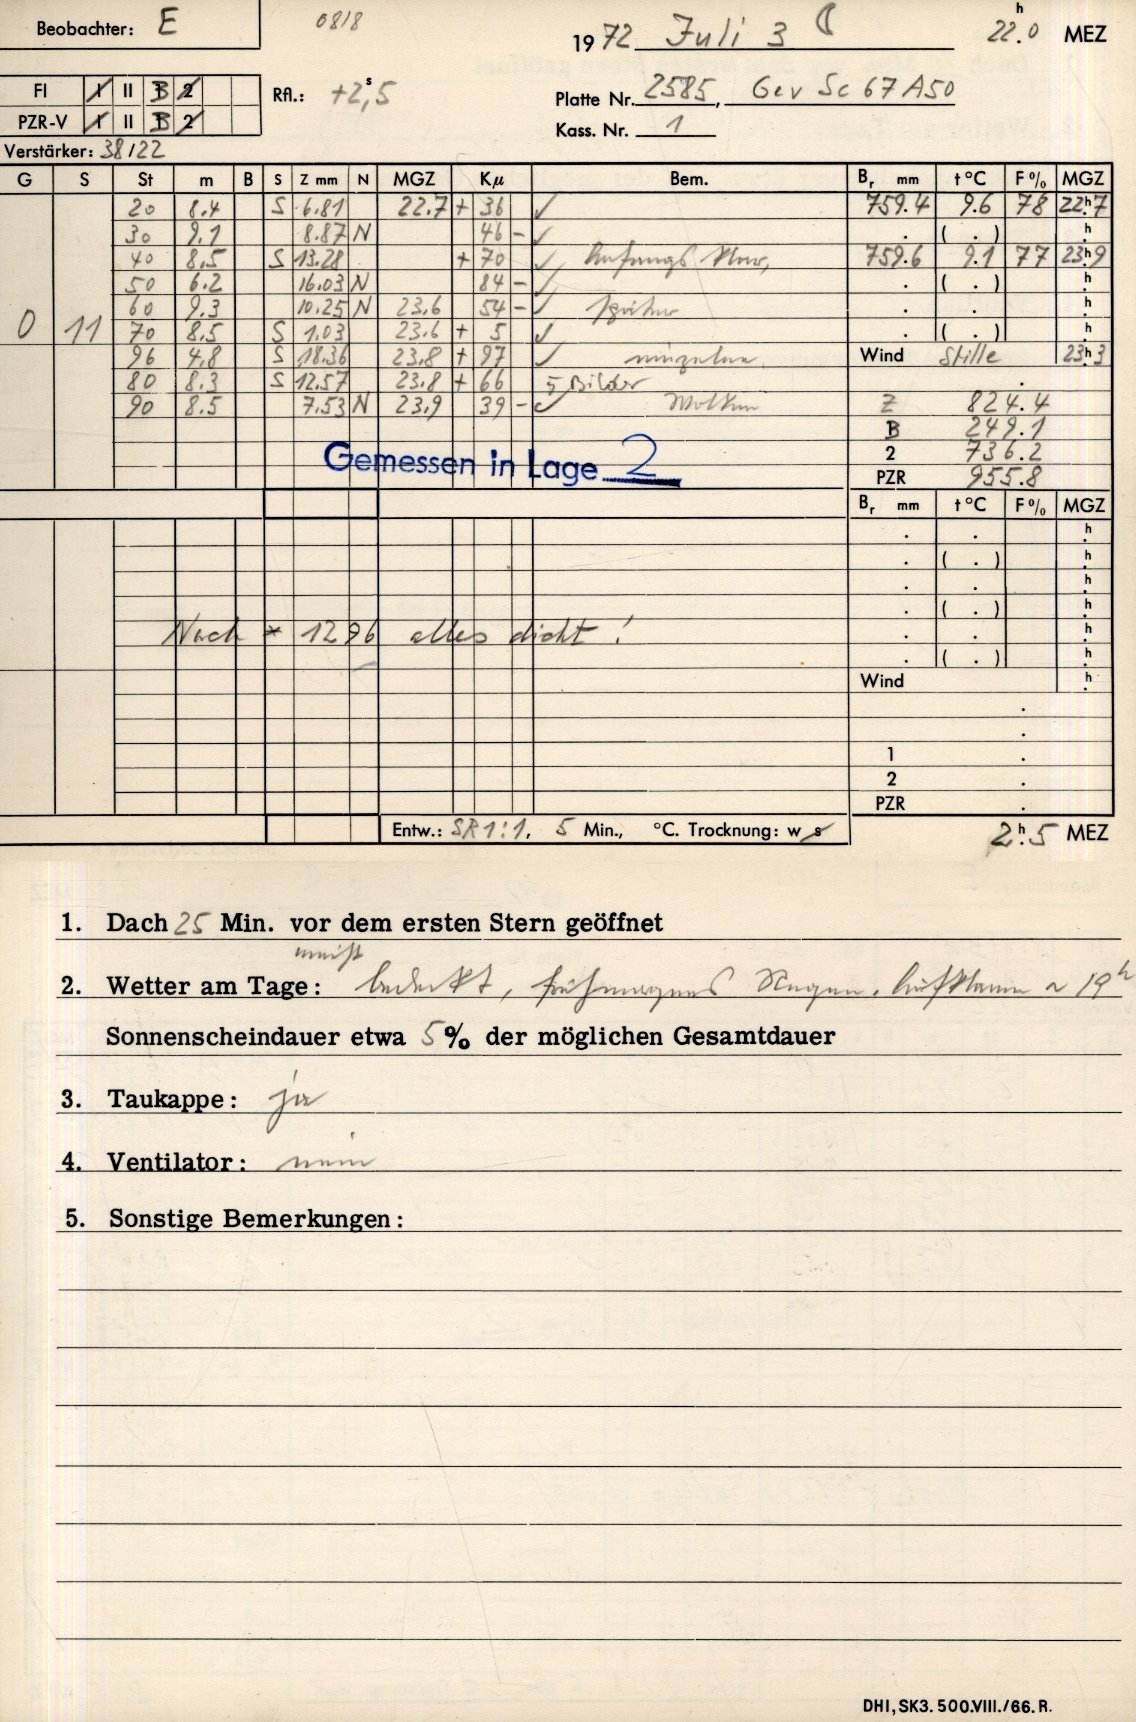 Beobachter: E 0818 1972 Juli 3 ☾ 22.ʰ0 MEZ
FI I II B 2 Rfl.: +2,ˢ5 Platte Nr. 2585, Gev Sc 67 A50
PZR-V I II B 2 Kass. Nr. 1
Verstärker: 38/22
G S St m B S Z mm N MGZ Kμ Bem. Bᵣ mm t°C F% MGZ
20 8.4 S 6.81 22.7 + 36 ✓ 759.4 9.6 78 22ʰ.7
30 9.1 8.87 N 46 - ✓ . ( . ) ʰ.
40 8.5 S 13.28 + 70 ✓ Anfangs klar, 759.6 9.1 77 23ʰ.9
50 6.2 16.03 N 84 - ✓ . ( . ) ʰ.
60 9.3 10.25 N 23.6 54 - ✓ später . . ʰ.
0 11 70 8.5 S 1.03 23.6 + 5 ✓ . ( . ) ʰ.
96 4.8 S 18.36 23.8 + 97 ✓ einzelne Wind Stille 23ʰ.3
80 8.3 S 12.57 23.8 + 66 5 Bilder .
90 8.5 7.53 N 23.9 39 - ✓ Wolken Z 824.4
B 249.1
Gemessen in Lage 2 2 736.2
PZR 955.8
Bᵣ mm t°C F% MGZ
. . ʰ.
. ( . ) ʰ.
. . ʰ.
. ( . ) ʰ.
Nach * 1296 alles dicht! . . ʰ.
. ( . ) ʰ.
Wind ʰ.
.
.
1 .
2 .
PZR .
Entw.: SR 1:1, 5 Min., °C. Trocknung: w s 2ʰ.5 MEZ
1. Dach 25 Min. vor dem ersten Stern geöffnet
meist
2. Wetter am Tage: bedeckt, frühmorgens Regen. Aufklaren ~ 19ʰ
Sonnenscheindauer etwa 5% der möglichen Gesamtdauer
3. Taukappe: ja
4. Ventilator: nein
5. Sonstige Bemerkungen:
DHI, SK3. 500.VIII./66. R.